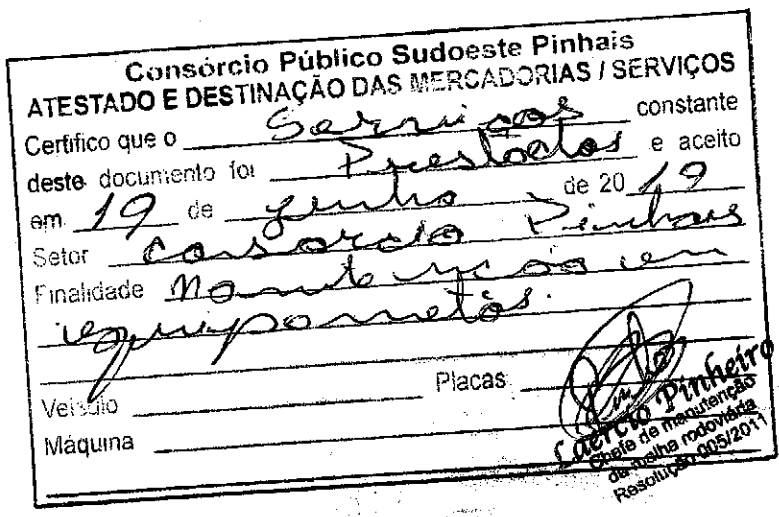 Consórcio Público Sudoeste Pinhais
ATESTADO E DESTINAÇÃO DAS MERCADORIAS / SERVIÇOS
Certifico que o Serviços constante
deste documento foi Prestados e aceito
em 19 de junho de 20 19
Setor Consorcio Pinhais
Finalidade Manutenção em
equipametos.
Placas
Veículo
Máquina
Laércio Pinheiro
Chefe de manutenção
da malha rodoviária
Resolução 005/2011